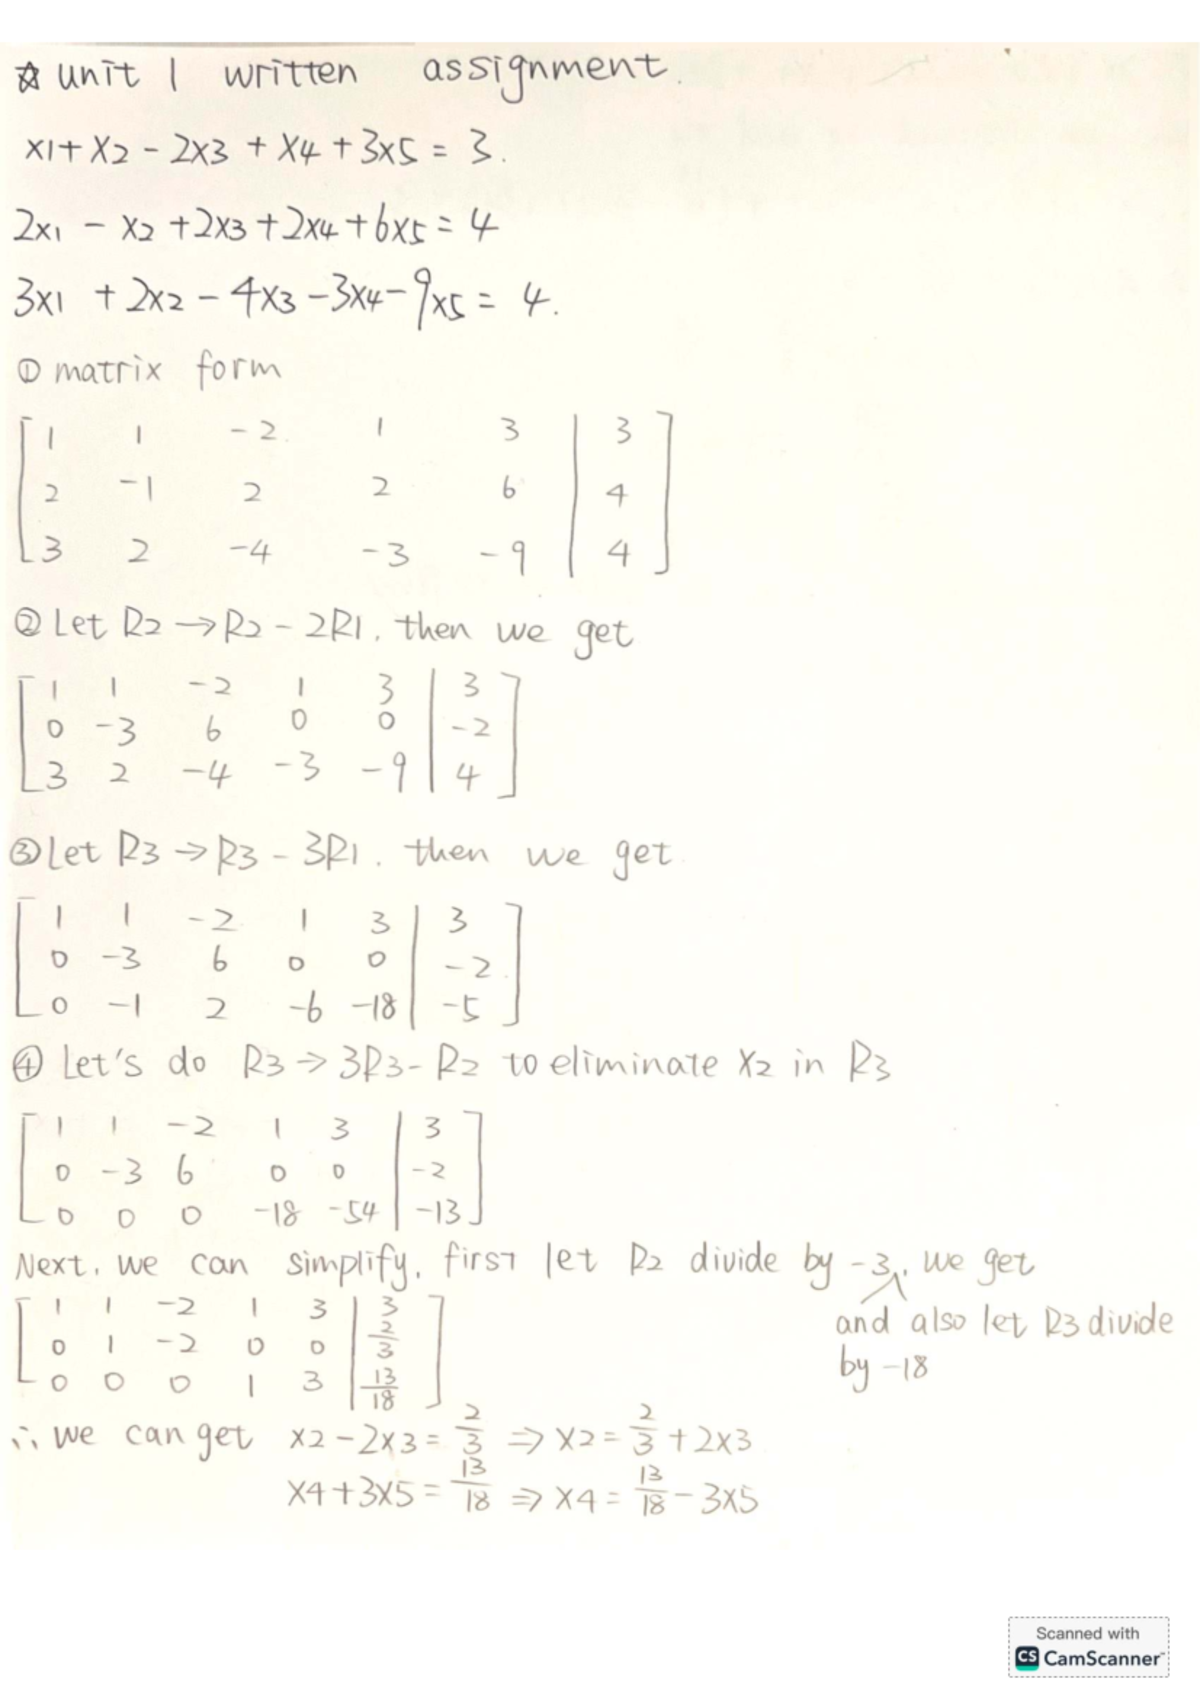 ☆ unit 1 written assignment.
x1+x2-2x3+x4+3x5=3.
2x1-x2+2x3+2x4+6x5=4
3x1+2x2-4x3-3x4-9x5=4.
① matrix form
[1 1 -2 1 3 | 3]
[2 -1 2 2 6 | 4]
[3 2 -4 -3 -9 | 4]
② Let R2→R2-2R1, then we get
[1 1 -2 1 3 | 3]
[0 -3 6 0 0 | -2]
[3 2 -4 -3 -9 | 4]
③ Let R3→R3-3R1. then we get
[1 1 -2 1 3 | 3]
[0 -3 6 0 0 | -2]
[0 -1 2 -6 -18 | -5]
④ Let's do R3→3R3-R2 to eliminate x2 in R3
[1 1 -2 1 3 | 3]
[0 -3 6 0 0 | -2]
[0 0 0 -18 -54 | -13]
Next, we can simplify, first let R2 divide by -3, we get
and also let R3 divide
by -18
[1 1 -2 1 3 | 3]
[0 1 -2 0 0 | 2/3]
[0 0 0 1 3 | 13/18]
∴ we can get x2-2x3=2/3 ⇒ x2=2/3+2x3
x4+3x5=13/18 ⇒ x4=13/18-3x5
Scanned with
CS CamScanner